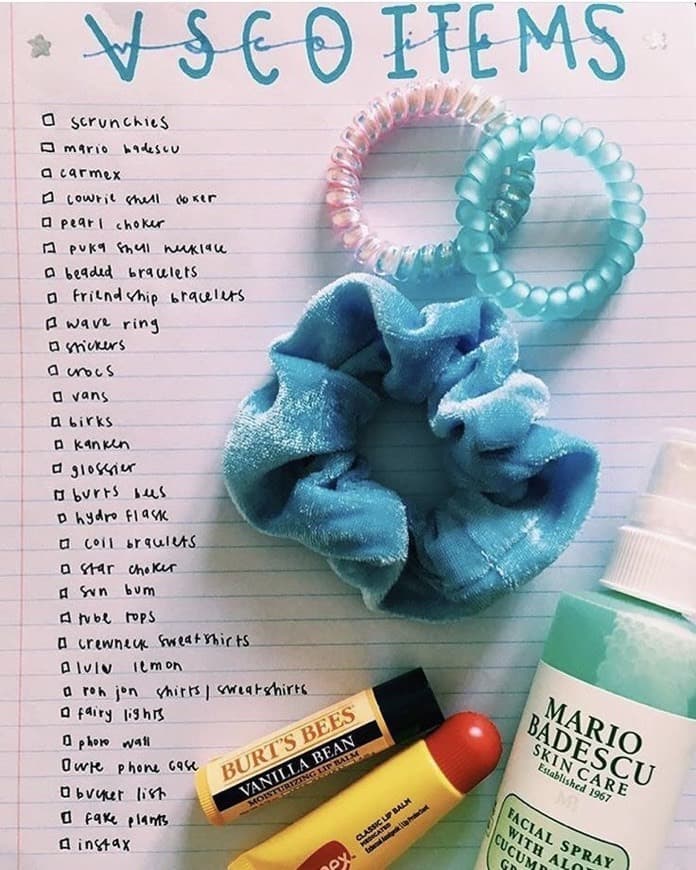 VSCO ITEMS
vsco items
scrunchies
mario badescu
carmex
cowrie shell coker
pearl choker
puka shell necklace
beaded bracelets
friendship bracelets
wave ring
stickers
crocs
vans
birks
kanken
glossier
burts bees
hydro flask
coil bracelets
star choker
sun bum
tube tops
crewneck sweatshirts
lulu lemon
ron jon shirts/sweatshirts
fairy lights
photo wall
cute phone case
bucket list
fake plants
instax
BURT'S BEES
VANILLA BEAN
MOISTURIZING LIP BALM
CLASSIC LIP BALM
MEDICATED
External Analgesic | Lip Protectant
MARIO
BADESCU
SKIN CARE
Established 1967
FACIAL SPRAY
WITH